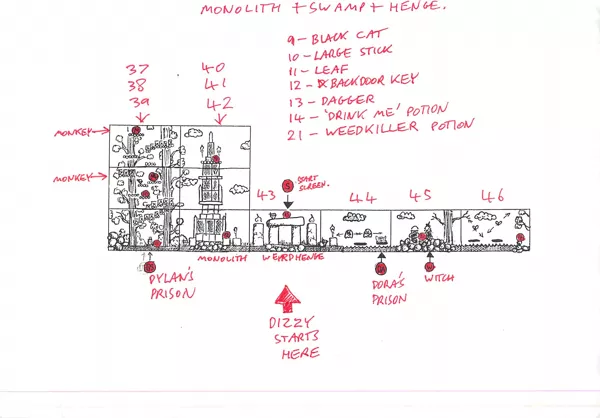 MONOLITH + SWAMP + HENGE.
9 - BLACK CAT
10 - LARGE STICK
11 - LEAF
12 - BACKDOOR KEY
13 - DAGGER
14 - 'DRINK ME' POTION
21 - WEEDKILLER POTION
37 40
38 41
39 42
MONKEY
MONKEY
START SCREEN.
S
43 44 45 46
MONOLITH WEIRDHENGE
DYLAN'S PRISON
DORA'S PRISON
WITCH
DIZZY
STARTS
HERE